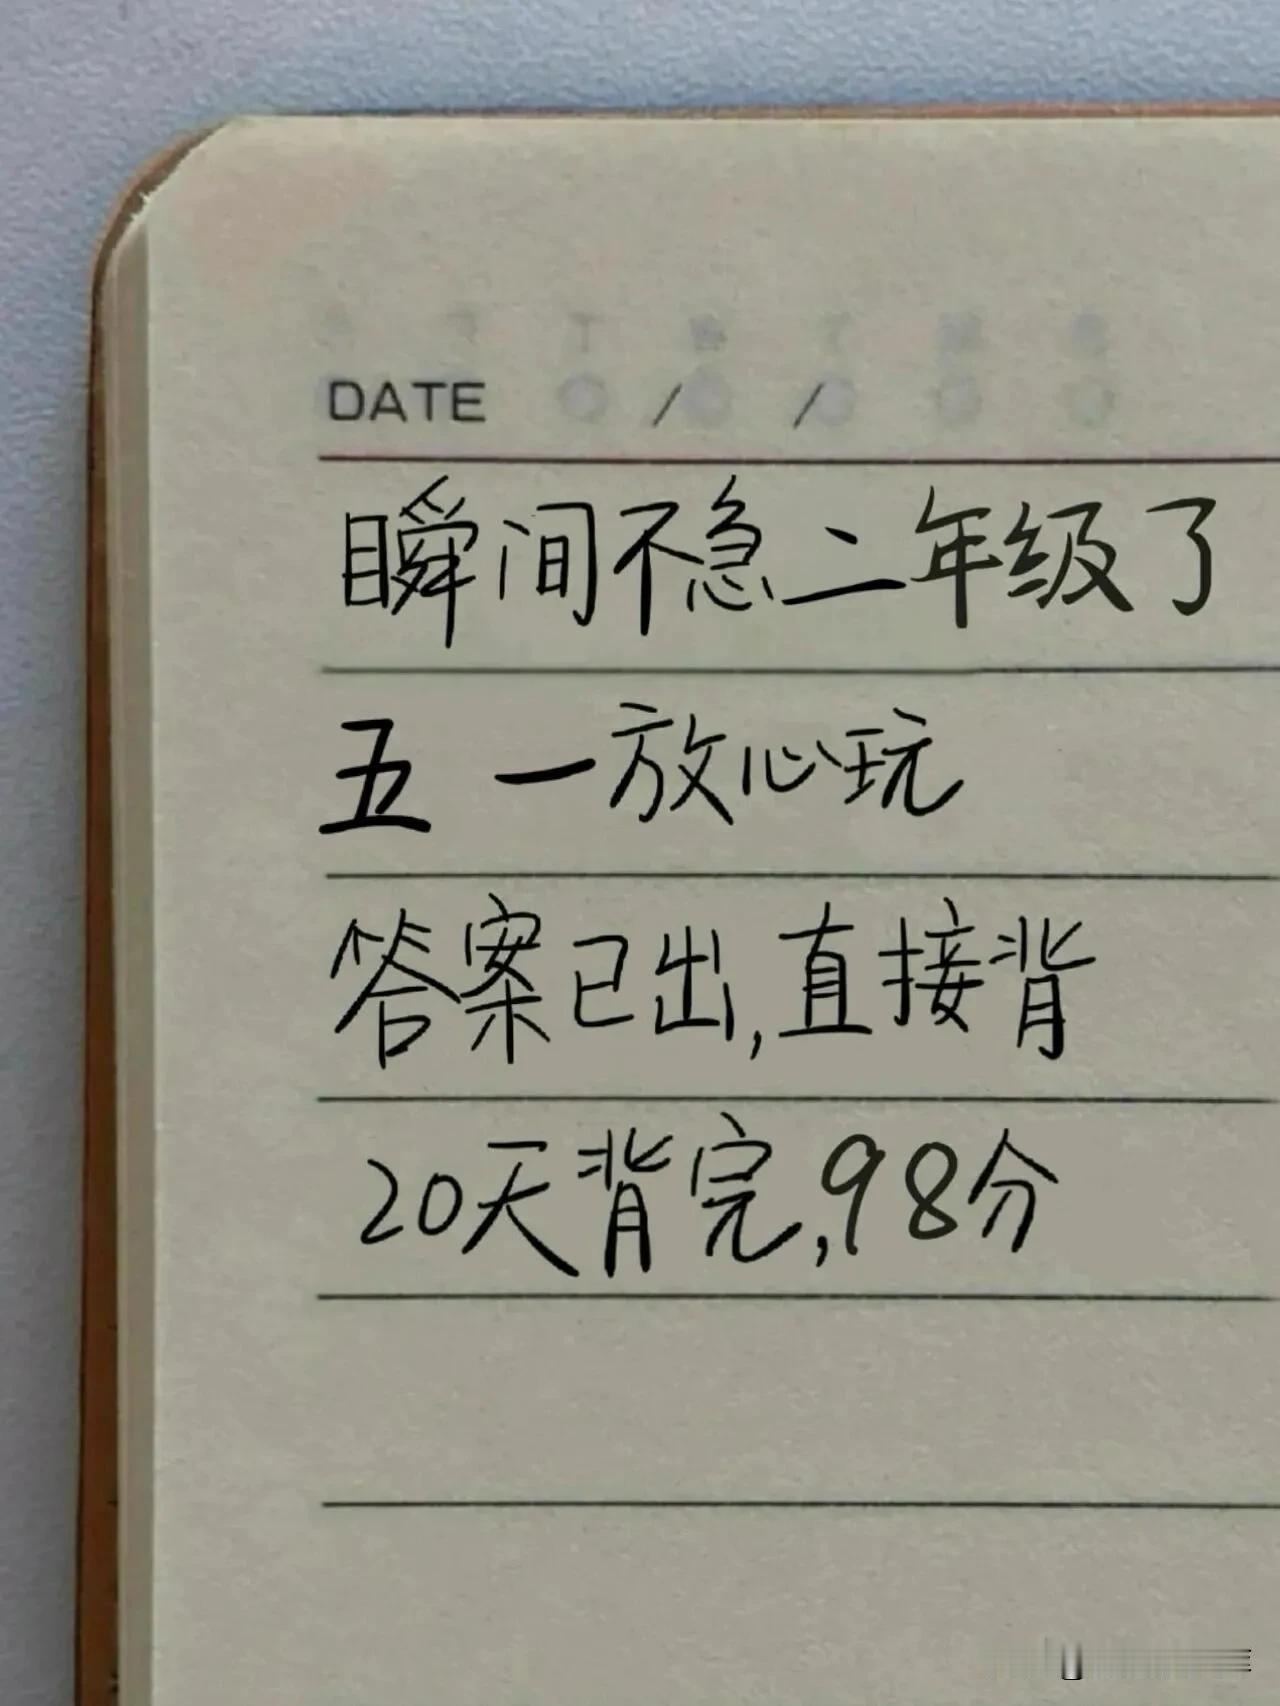 DATE / /
瞬间不急二年级了
五一放心玩
答案已出,直接背
20天背完,98分